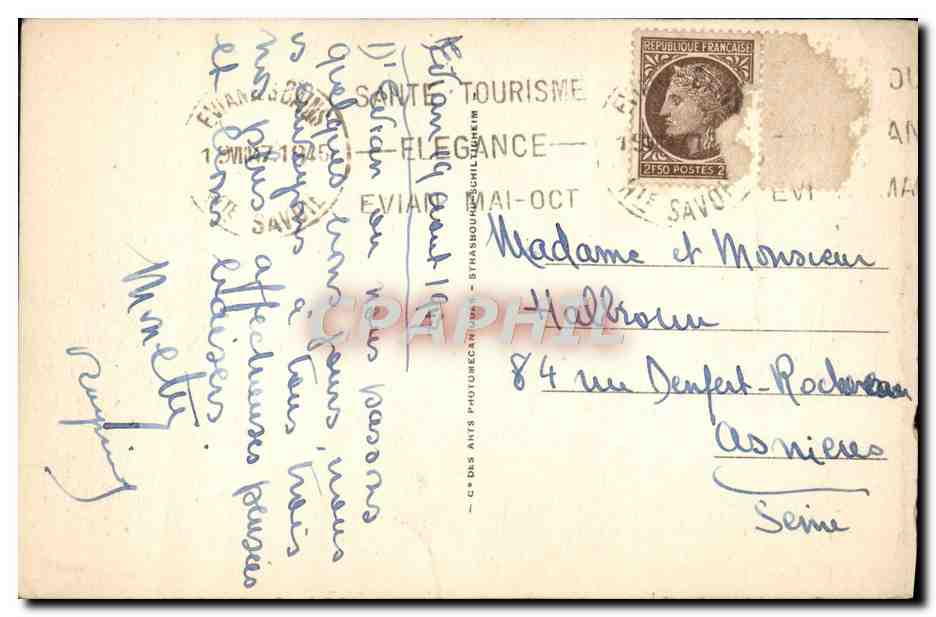 Evian 9 août 194
D'Evian où nous passons
quelques bons jours, nous
vous envoyons à tous trois
nos plus affectueuses pensées
et bons baisers.
Minette
EVIAN LES BAINS
19 VIII 47 1945
HTE SAVOIE
SANTE TOURISME
ELEGANCE
EVIAN MAI-OCT
REPUBLIQUE FRANÇAISE
2F50 POSTES 2
SAVOIE
EVI
OU
AN
MA
Cie DES ARTS PHOTOMECANIQUES - STRASBOURG-SCHILTIGHEIM
CPAPHIL
Madame et Monsieur
Halbronn
84 rue Denfert-Rochereau
Asnières
Seine